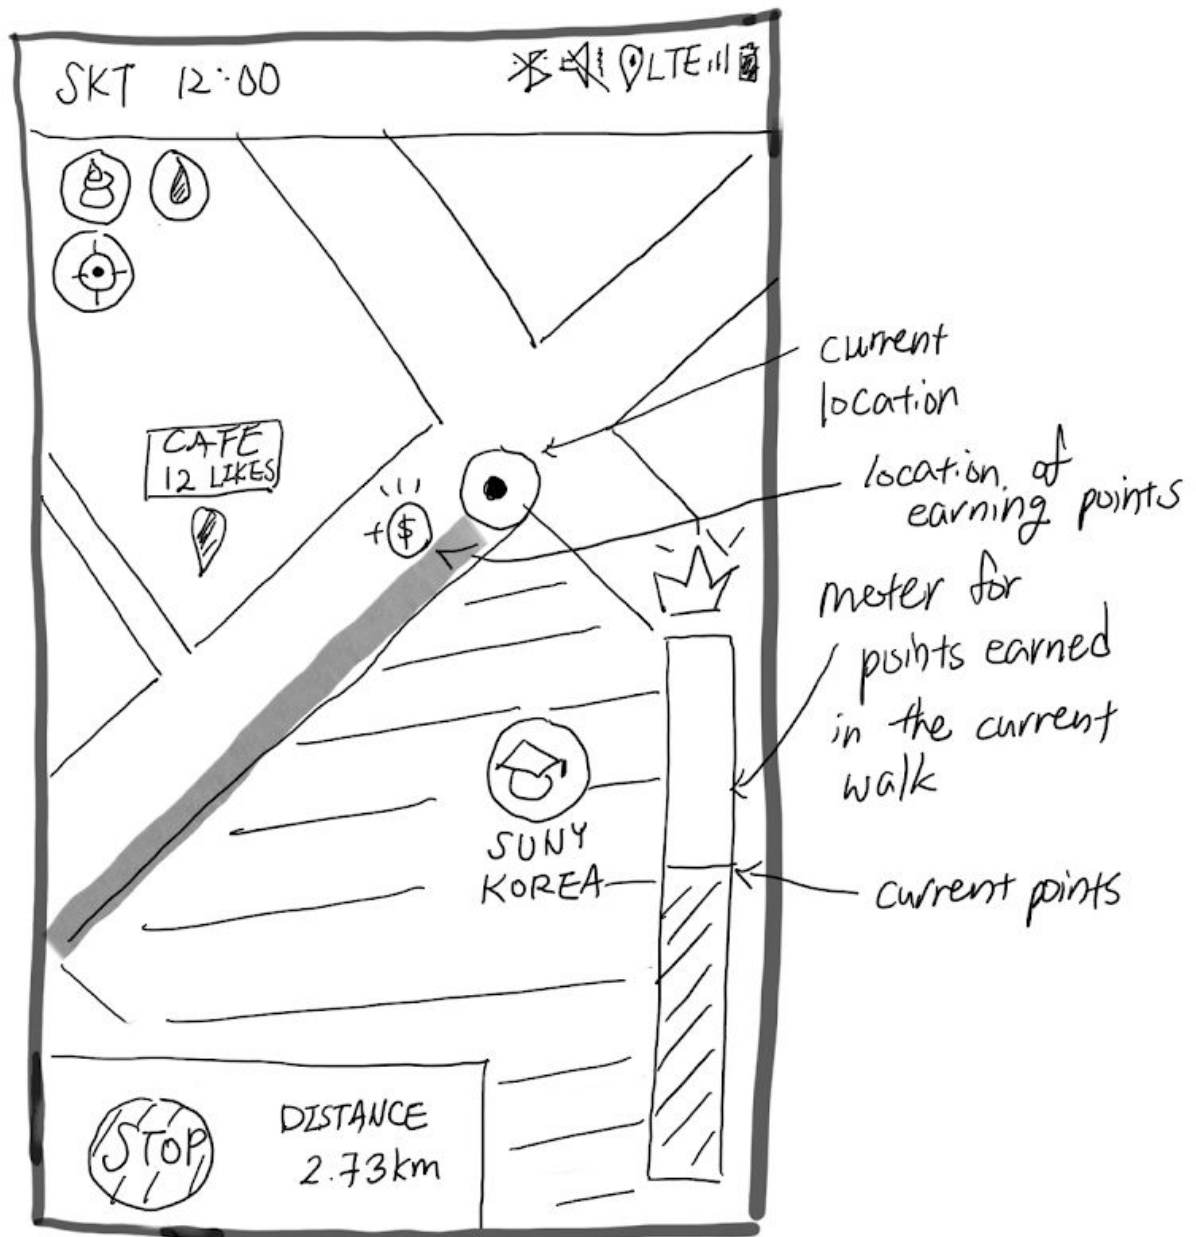 SKT 12:00 LTE
CAFE
12 LIKES
+$
SUNY
KOREA
STOP
DISTANCE
2.73km
current
location
location of
earning points
meter for
points earned
in the current
walk
current points